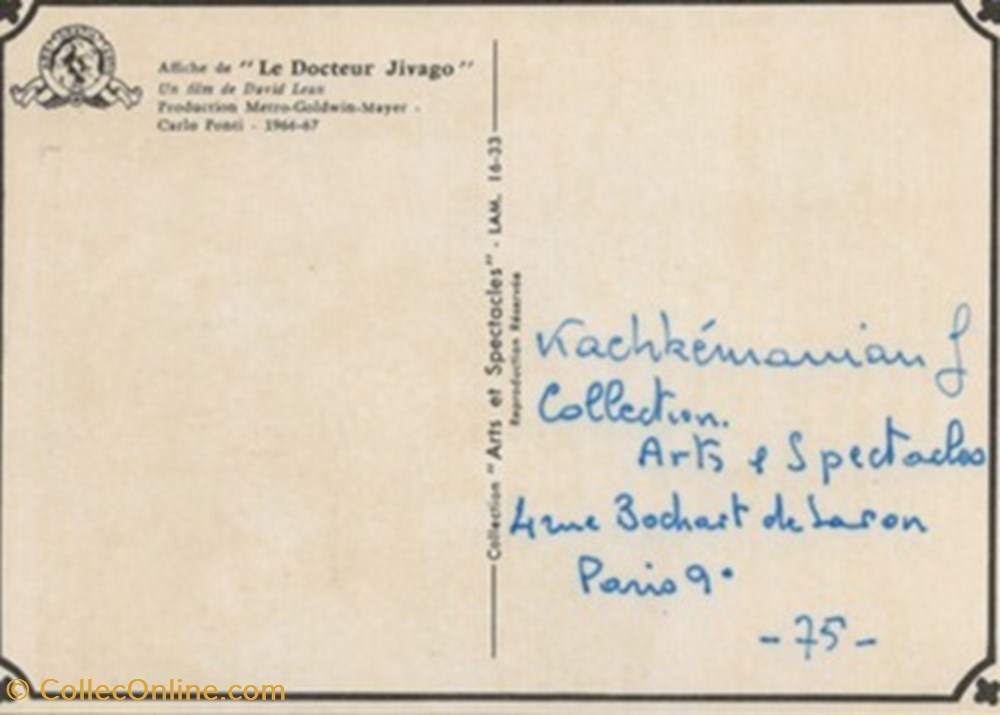 Affiche de "Le Docteur Jivago"
Un film de David Lean
Production Metro-Goldwin-Mayer -
Carlo Ponti - 1966-67
Collection "Arts et Spectacles" - LAM. 16-33
Reproduction Réservée
Kachkémanian J
Collection.
Arts & Spectacles
4 rue Bochart de Saron
Paris 9°
- 75 -
© CollecOnline.com